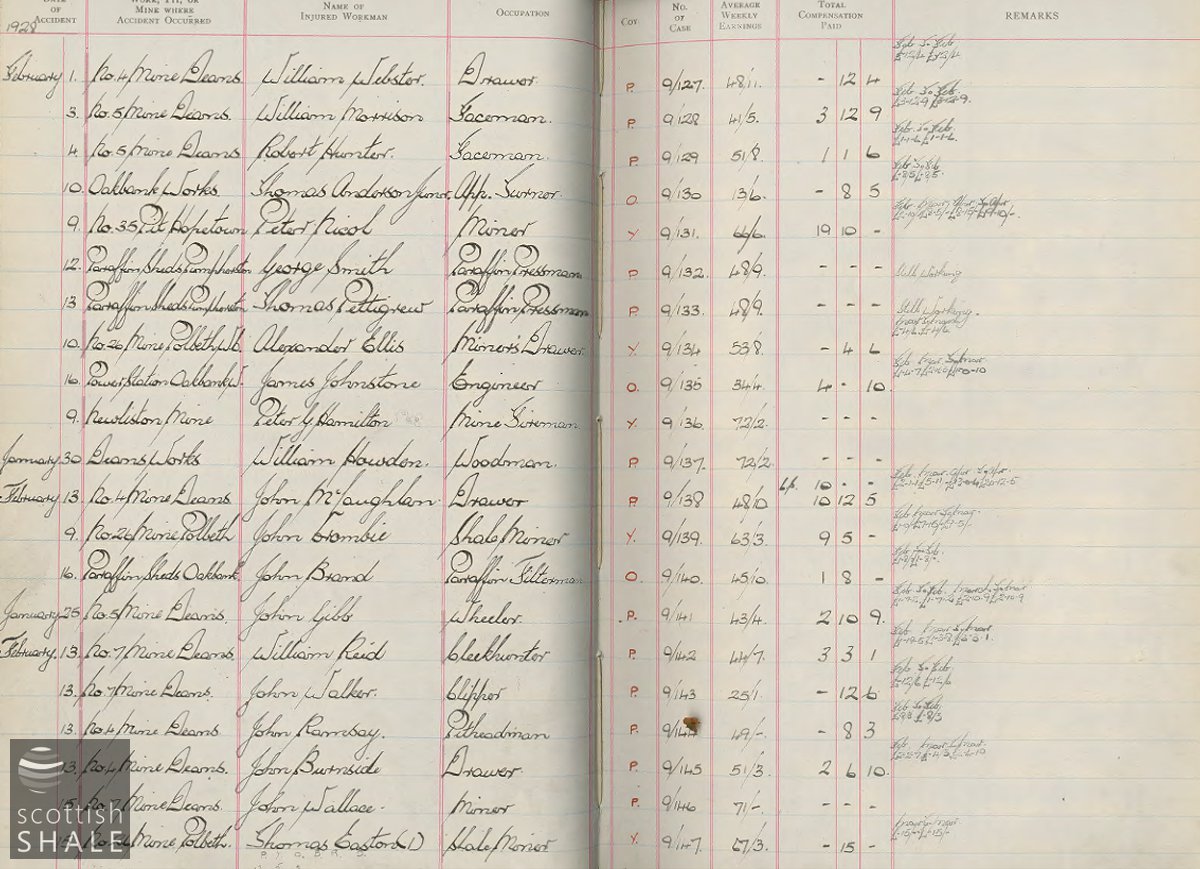 DATE OF ACCIDENT WORK, PIT, OR MINE WHERE ACCIDENT OCCURRED NAME OF INJURED WORKMAN OCCUPATION COY NO. OF CASE AVERAGE WEEKLY EARNINGS TOTAL COMPENSATION PAID REMARKS
1928
February 1. No. 4 Mine Deans William Webster. Drawer P. 9/127. 48/11. - 12 4
3. No. 5 Mine Deans. William Morrison Faceman. P. 9/128 41/5. 3 12 9
4. No. 5 Mine Deans Robert Hunter. Faceman. P. 9/129 51/8. 1 1 6
10. Oakbank Works Thomas Anderson Junior. App. Turner. O. 9/130 13/6. - 8 5
9. No. 35 Pit Hopetown Peter Nicol Miner Y 9/131. 66/6. 19 10 -
12. Paraffin Sheds Pumpherston George Smith Paraffin Pressman P 9/132. 48/9. - - - Still Working
13 Paraffin Sheds Pumpherston Thomas Pettigrew Paraffin Pressman P. 9/133. 48/9. - - - Still Working.
10. No. 26 Mine Polbeth, W. Alexander Ellis Miner's Drawer Y. 9/134 53/8. - 4 6
16. Power Station Oakbank W. James Johnstone Engineer O. 9/135 34/4. 4 - 10
9. Newliston Mine Peter G Hamilton Mine Fireman Y. 9/136. 72/2. - - -
January 30 Deans Works William Howden. Woodman. P. 9/137. 72/2 - - -
February 13. No. 4 Mine Deans John McLaughlan. Drawer P. 9/138 48/10 10 12 5
9. No. 26 Mine Polbeth John Crombie Shale Miner Y. 9/139. 63/3. 9 5 -
16. Paraffin Sheds Oakbank John Brand Paraffin Filterman O. 9/140. 45/10. 1 8 -
January 25 No. 5 Mine Deans. John Gibb Wheeler. P. 9/141 43/4. 2 10 9.
February 13. No. 7 Mine Deans. William Reid Cleekhunter P. 9/142 44/7. 3 3 1
13. No 7 Mine Deans. John Walker. Clipper P. 9/143 25/1. - 12 6
13. No. 4 Mine Deans John Ramsay. Pitheadman P. 9/144 49/-. - 8 3
13. No. 4 Mine Deans. John Burnside Drawer P. 9/145 51/3. 2 6 10.
15. No. 7 Mine Deans. John Wallace. Miner P. 9/146 71/-. - - -
Mine Polbeth. Thomas Easton (1) Shale Miner Y. 9/147. 67/3. - 15 -
scottish
SHALE